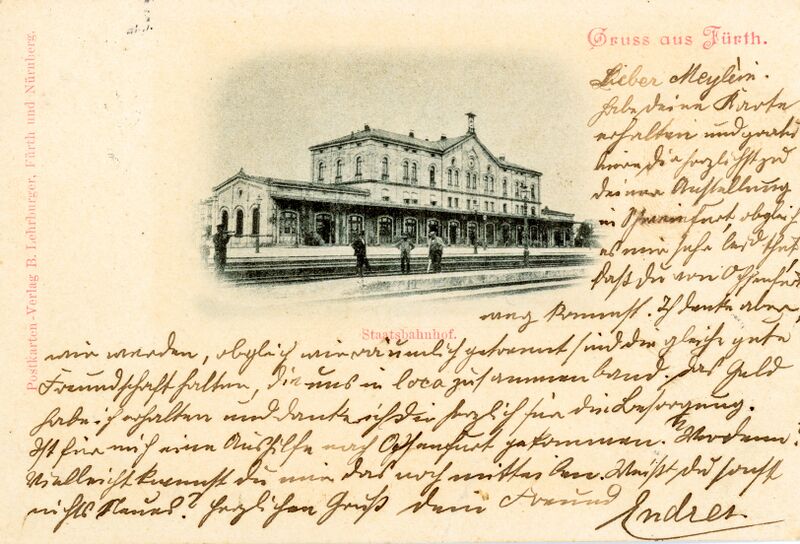 Gruss aus Fürth.
Lieber Meylein.
habe deine Karte
erhalten und gratu
liere dir herzlichst zu
deiner Anstellung
in Schweinfurt, obgleich
es mir sehr leid thut,
daß du von Ochsenfurt
weg kommst. Ich denke aber,
wir werden, obgleich wir räumlich getrennt sind die gleiche gute
Freundschaft halten, die uns in loco zusammenband. Das Geld
habe ich erhalten und danke ich dir herzlich für die Besorgung.
Ist für mich eine Aushilfe nach Ochsenfurt gekommen?
Vielleicht kannst du mir das noch mitteilen. Weißt du sonst
nichts Neues? Herzlichen Gruß dein Freund
Endres
Staatsbahnhof.
Postkarten-Verlag B. Lehrburger, Fürth und Nürnberg.